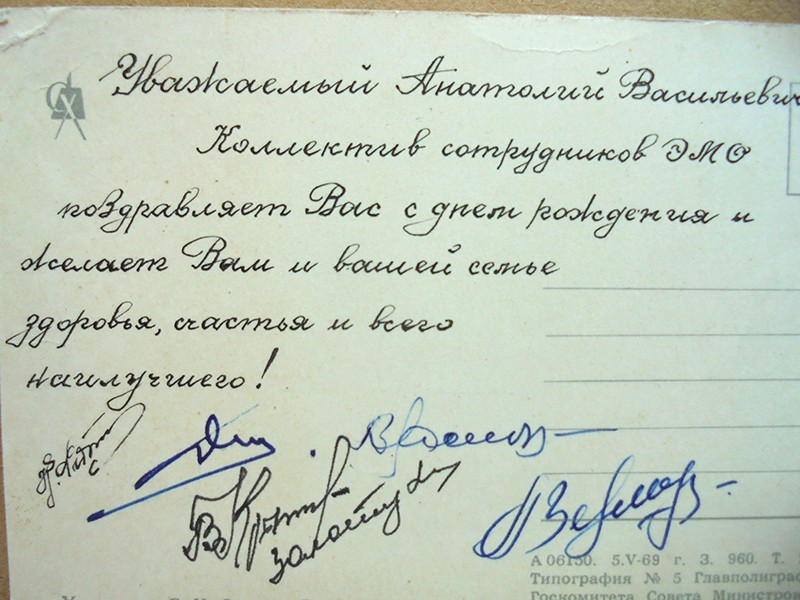 Уважаемый Анатолий Васильевич
Коллектив сотрудников ЭМО
поздравляет Вас с днем рождения и
желает Вам и вашей семье
здоровья, счастья и всего
наилучшего!
А 06150. 5.V-69 г. З. 960. Т.
Типография № 5 Главполиграф
Госкомитета Совета Министров